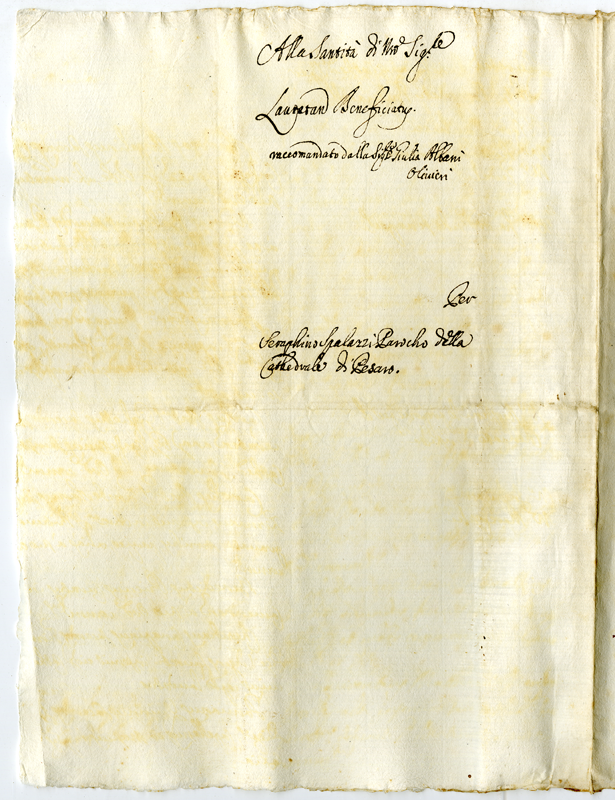 Alla Santità di Nro Sig.re
Lauretan Beneficiatus.
raccomandato dalla Sig.ra Giulia Albani
Olivieri
Per
Seraphino Spalazzi Parocho della
Cathedrale di Pesaro.